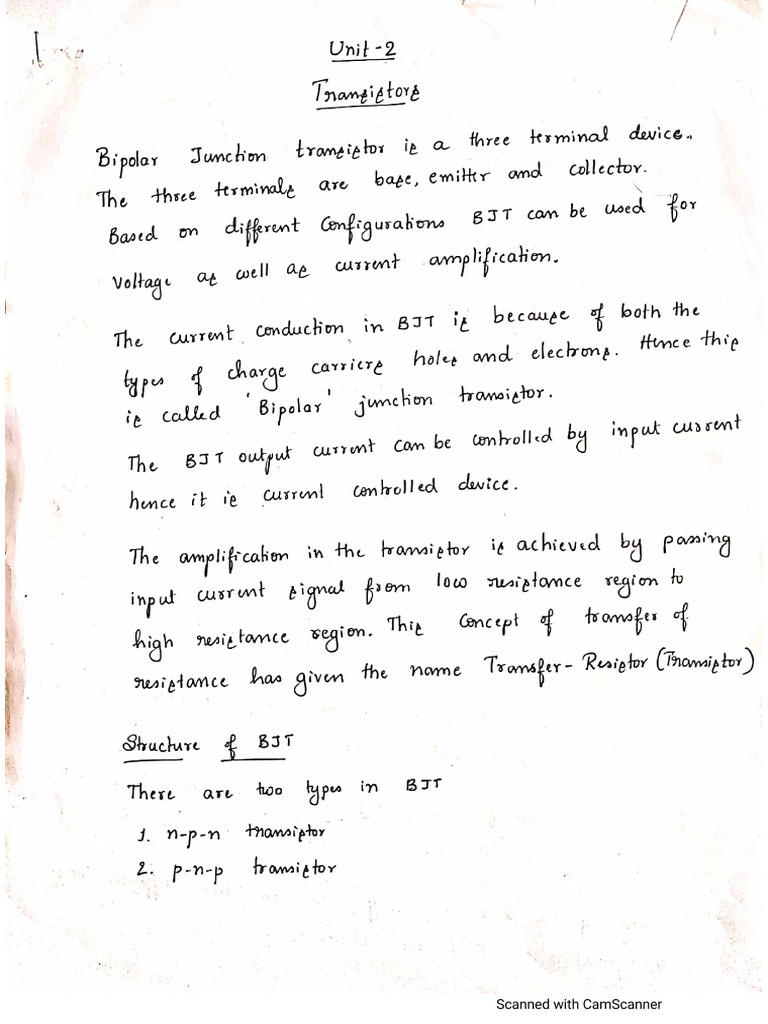 Unit-2
Transistors
Bipolar Junction transistor is a three terminal device.
The three terminals are base, emitter and collector.
Based on different Configurations BJT can be used for
Voltage as well as current amplification.
The current conduction in BJT is because of both the
types of charge carriers holes and electrons. Hence this
is called 'Bipolar' junction transistor.
The BJT output current can be controlled by input current
hence it is current controlled device.
The amplification in the transistor is achieved by passing
input current signal from low resistance region to
high resistance region. This concept of transfer of
resistance has given the name Transfer-Resistor (Transistor)
Structure of BJT
There are two types in BJT
1. n-p-n transistor
2. p-n-p transistor
Scanned with CamScanner